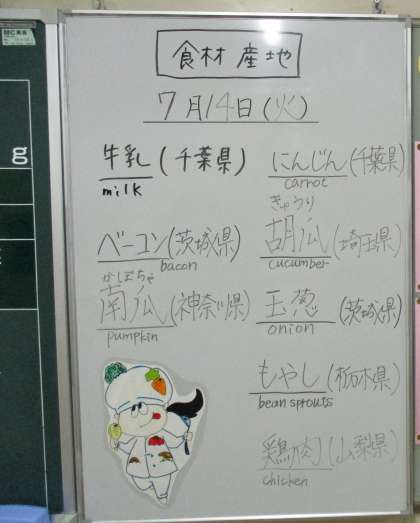 食材 産地
7月14日(火)
牛乳(千葉県)
milk
ベーコン(茨城県)
bacon
かぼちゃ
南瓜(神奈川県)
pumpkin
にんじん(千葉県)
carrot
きゅうり
胡瓜(埼玉県)
cucumber
玉葱(茨城県)
onion
もやし(栃木県)
bean sprouts
鶏肉(山梨県)
chicken
g